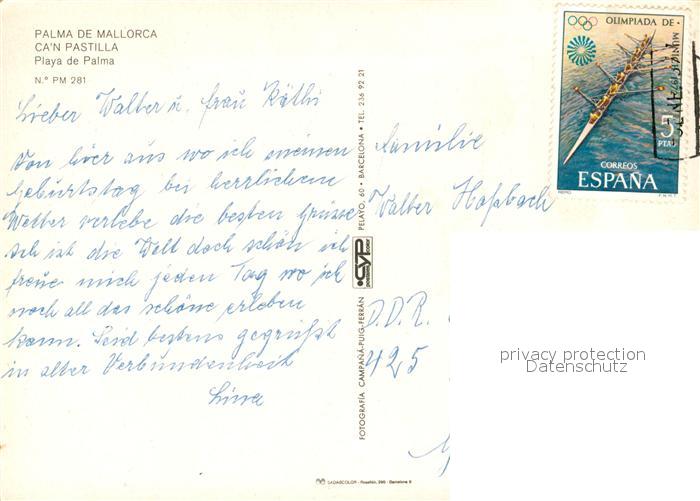 PALMA DE MALLORCA
CA'N PASTILLA
Playa de Palma
N.° PM 281
Lieber Walter u. Frau Käthi
Von hier aus wo ich meinen
Geburtstag bei herrlichem
Wetter verlebe die besten Grüsse
Ach ist die Welt doch schön ich
freue mich jeden Tag wo ich
noch all das schöne erleben
kann. Seid bestens gegrüßt
in alter Verbundenheit
PELAYO, 60 • BARCELONA • TEL. 236 92 21
CYP
FOTOGRAFÍA CAMPAÑÁ-PUIG-FERRÁN
Familie
Walter Hoßbach
D.D.R.
425
OLIMPIADA DE
MUNICH 1972
5
PTAS
CORREOS
ESPAÑA
F.N.M.T.
privacy protection
Datenschutz